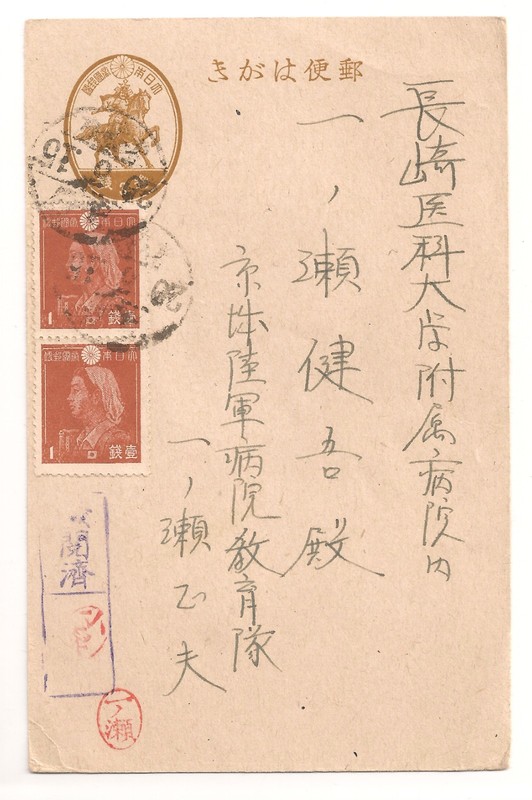 郵便はがき
長崎医科大学附属病院内
一ノ瀬健吾殿
京城陸軍病院教育隊
一ノ瀬正夫
大日本帝國郵便
大日本帝國郵便
壹錢
1
大日本帝國郵便
壹錢
1
閲濟
一ノ瀬